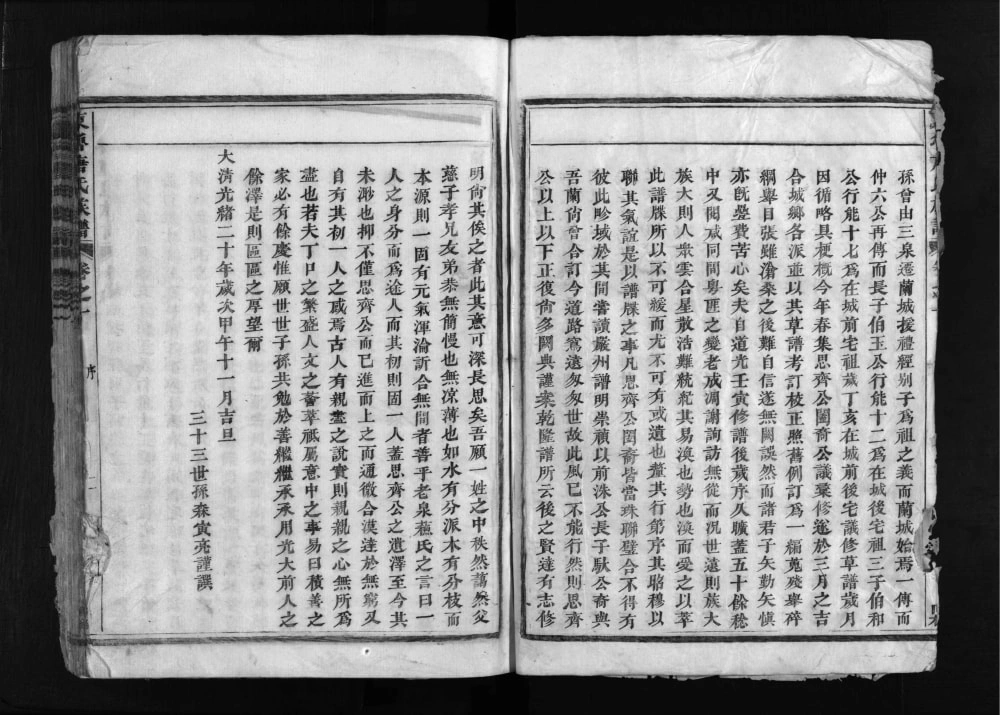 孫曾由三泉遷蘭城援禮經别子為祖之義而蘭城始焉一傳而
仲六公再傳而長子伯玉公行能十二為在城後宅祖三子伯和
公行能十七為在城前宅祖歲丁亥在城前後宅議修草譜歲月
因循略具梗概今年春集思齊公闔裔公議彙修遂於三月之吉
合城鄉各派並以其草譜考訂校正照舊例訂為一編蒐殘舉碎
綱舉目張雖滄桑之後難自信遂無闕誤然而諸君子矢勤矢慎
亦旣壘費苦心矣夫自道光壬寅修譜後歲序久曠蓋五十餘稔
中又閱咸同間粵匪之變老成凋謝詢訪無從而况世遠則族大
族大則人衆雲合星散浩難統紀其易渙也勢也渙而愛之以萃
此譜牒所以不可緩而尤不可有或遺也釐其行第序其昭穆以
聯其氣誼是以譜牒之事凡思齊公闔裔皆當珠聯璧合不得有
彼此畛域於其間嘗讀嚴州譜明崇禎以前洙公長子馱公裔與
吾蘭尙曾合訂今道路寫遠匆匆世故此風已不能行然則思齊
公以上以下正復尙多闕典謹案乾隆譜所云後之賢達有志修
明尙其俟之者此其意可深長思矣吾願一姓之中秩然藹然父
慈子孝兄友弟恭無簡慢也無凉薄也如水有分派木有分枝而
本源則一固有元氣渾淪訢合無間者善乎老泉蘇氏之言曰一
人之身分而為途人而其初則固一人蓋思齊公之遺澤至今其
未渺也抑不僅思齊公而已進而上之而通微合漠達於無窮又
自有其初一人之戚焉古人有親盡之說實則親親之心無所為
盡也若夫丁口之繁盛人文之薈萃祇屬意中之事易曰積善之
家必有餘慶惟願世世子孫共勉於善繼繼承承用光大前人之
餘澤是則區區之厚望爾
大淸光緒二十年歲次甲午十一月吉旦
三十三世孫森寅亮謹譔
氏族譜
卷之一
序
二